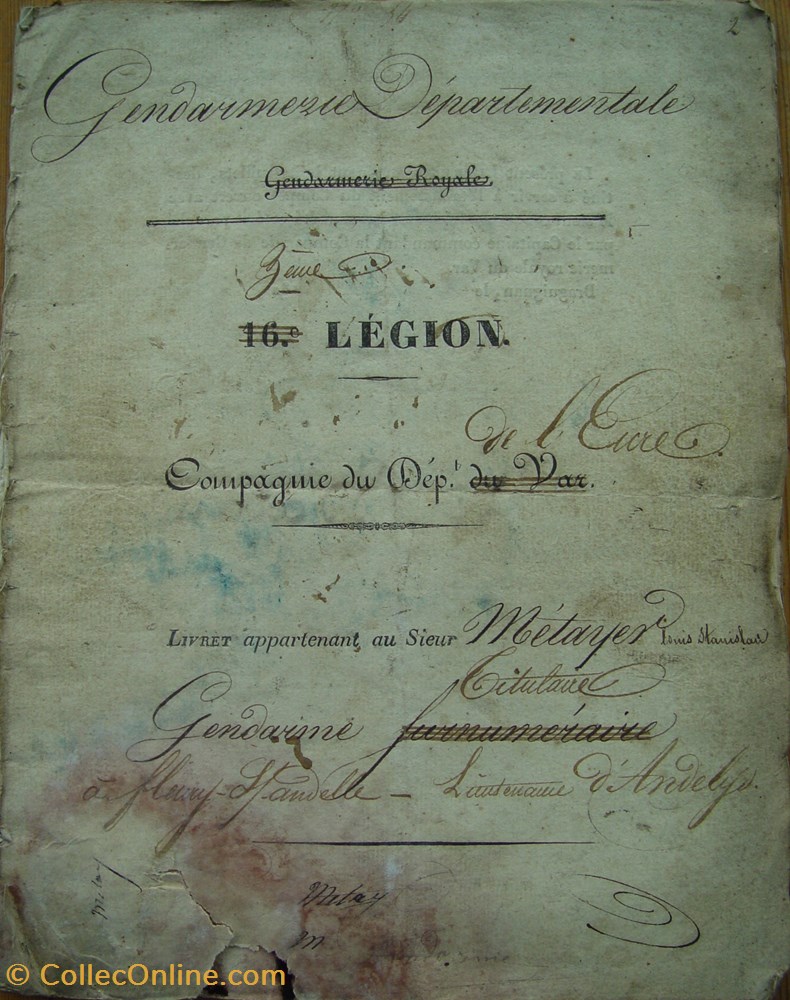 2
Gendarmerie Départementale
Gendarmerie Royale.
3ème
16.e LÉGION.
de l'Eure.
Compagnie du Dép.t du Var.
LIVRET appartenant au Sieur Métayer Louis Stanislas
Titulaire
Gendarme surnuméraire
à fleury-St andelle - Lieutenance d'Andelys.
Métay
Métay
m
© CollecOnline.com